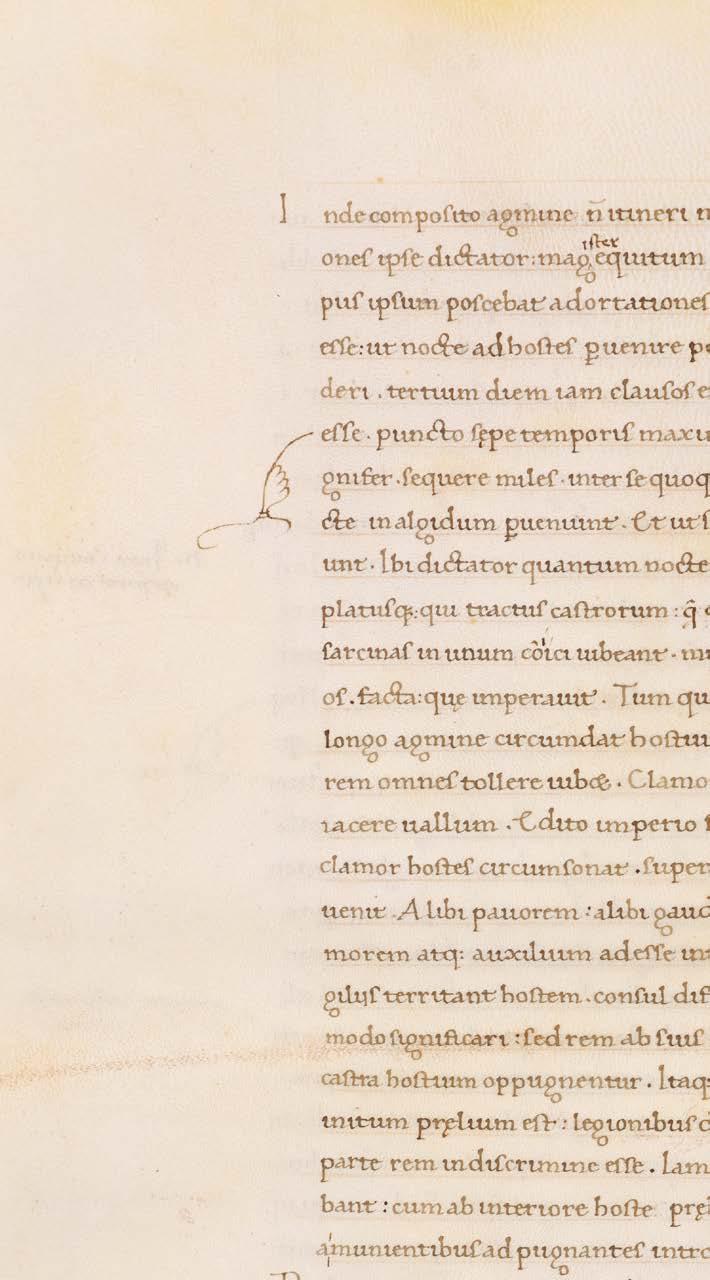 Inde composito agmine n̄ itineri
ister
oneſ ipſe dictator: mag, equitum
puſ ipſum poſcebat adortationeſ
eſſe: ut nocte ad hoſteſ ꝑuenire
deri . tertium diem iam clauſoſ
eſſe . puncto ſępe temporiſ
gnifer . ſequere mileſ . inter ſe
cte in algidum ꝑueniunt . Et ut
unt . Ibi dictator quantum nocte
platuſq;: qui tractuſ caſtrorum : q̄
ſarcinaſ in unum cōici iubeant .
oſ . facta: quę imperauit . Tum
longo agmine circumdat
rem omneſ tollere iubet .
iacere uallum . Edito imperio
clamor hoſteſ circumſonat .
uenit . Alibi pauorem : alibi
morem atq: auxilium adeſſe
gilijſ territant hoſtem . conſul
modo ſignificari : ſed rem ab ſuiſ
caſtra hoſtium oppugnentur .
initum pręlium eſt : legionibuſ
parte rem in diſcrimine eſſe .
bant : cum ab interiore hoſte
amunientibuſ ad pugnanteſ